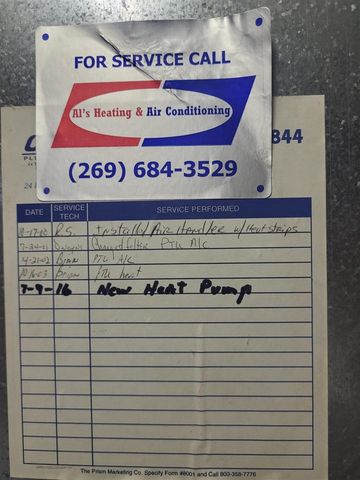 FOR SERVICE CALL
Al's Heating & Air Conditioning
(269) 684-3529
844
24
DATE SERVICE TECH SERVICE PERFORMED
R.S. Install Air Handler w/ Heat strips
7-24-01 Changed filter PTU A/C
4-21-02 Brian PTU A/C
10-16-03 Brian PTU heat
7-9-16 New Heat Pump
The Prism Marketing Co. Specify Form #8001 and Call 800-358-7776